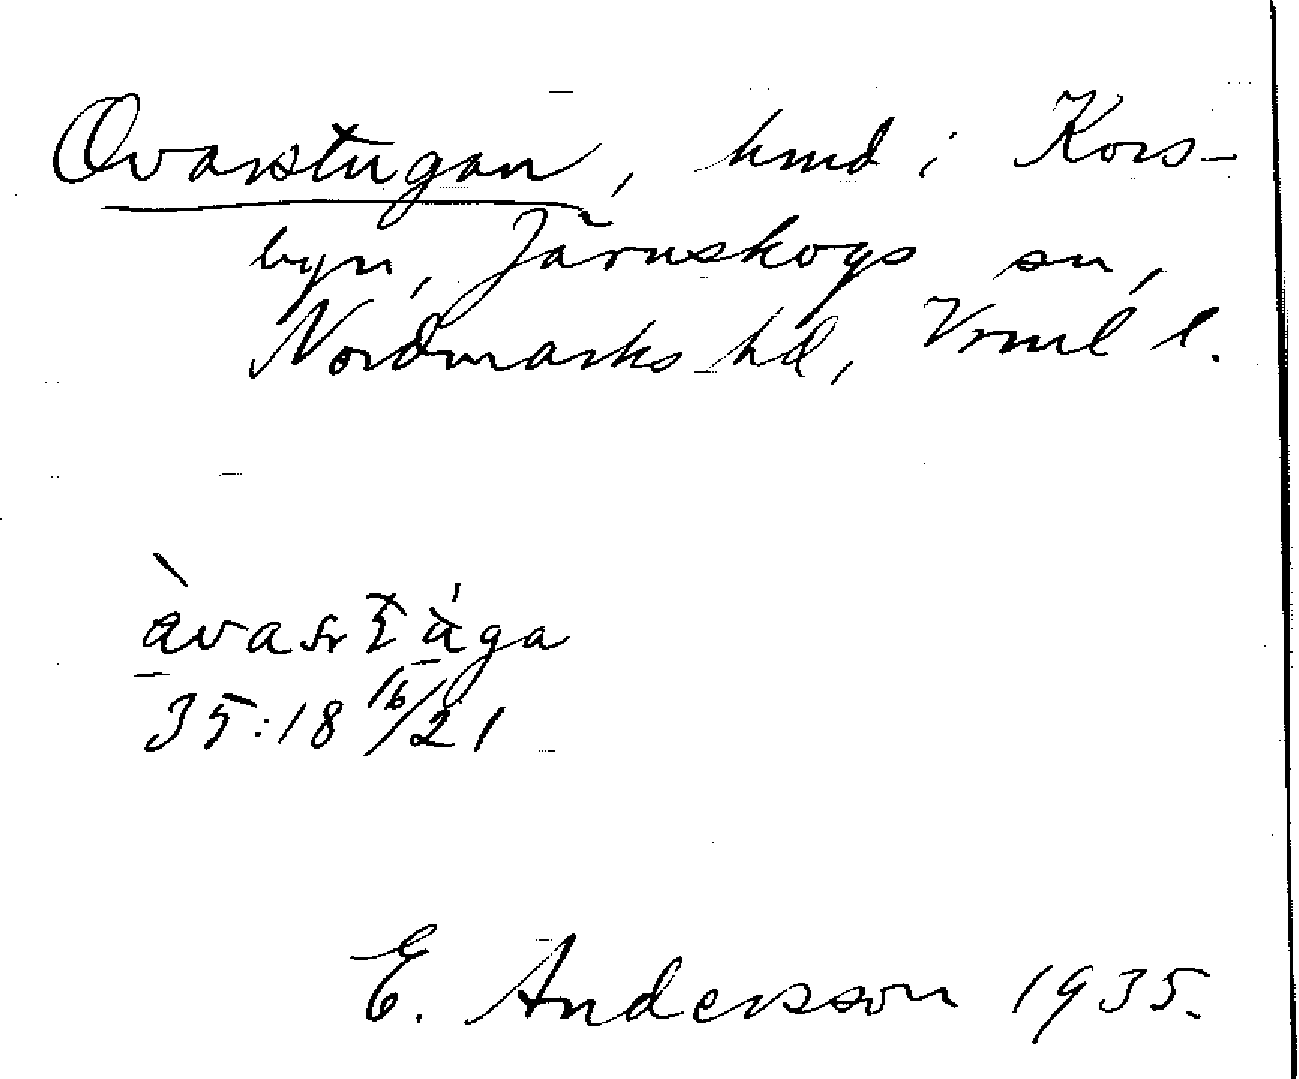 Ovarstugan, hmd i Kors-
byn, Järnskogs sn,
Nordmarks hd, Vrml l.
35:18 16/21
E. Andersson 1935.